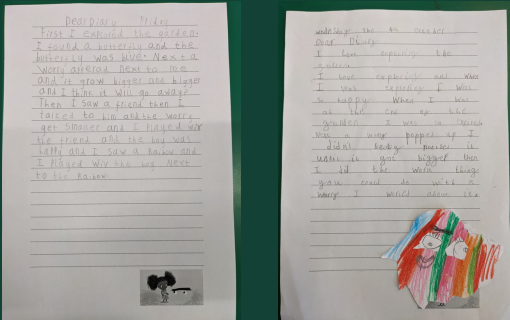 Dear Diary Friday
First I explored the garden.
I found a butterfly and the
butterfly was blue. Next a
worry apperad next to me
and it grow bigger and bigger
and I think it will go away?
Then I saw a friend then I
talked to him and the worry
get smaller and I played with
the friend and the boy was
happy and I saw a raibow and
I played with the boy next
to the raibow
Dear Diary
I love exploring the
I love exploring and when
I was exploring I was
so happy. When I was
at the end of the
garden I was so
was a worry popped up I
didn't
it got bigger then
I did the worst thing
you could do with a
worry I worried about it.